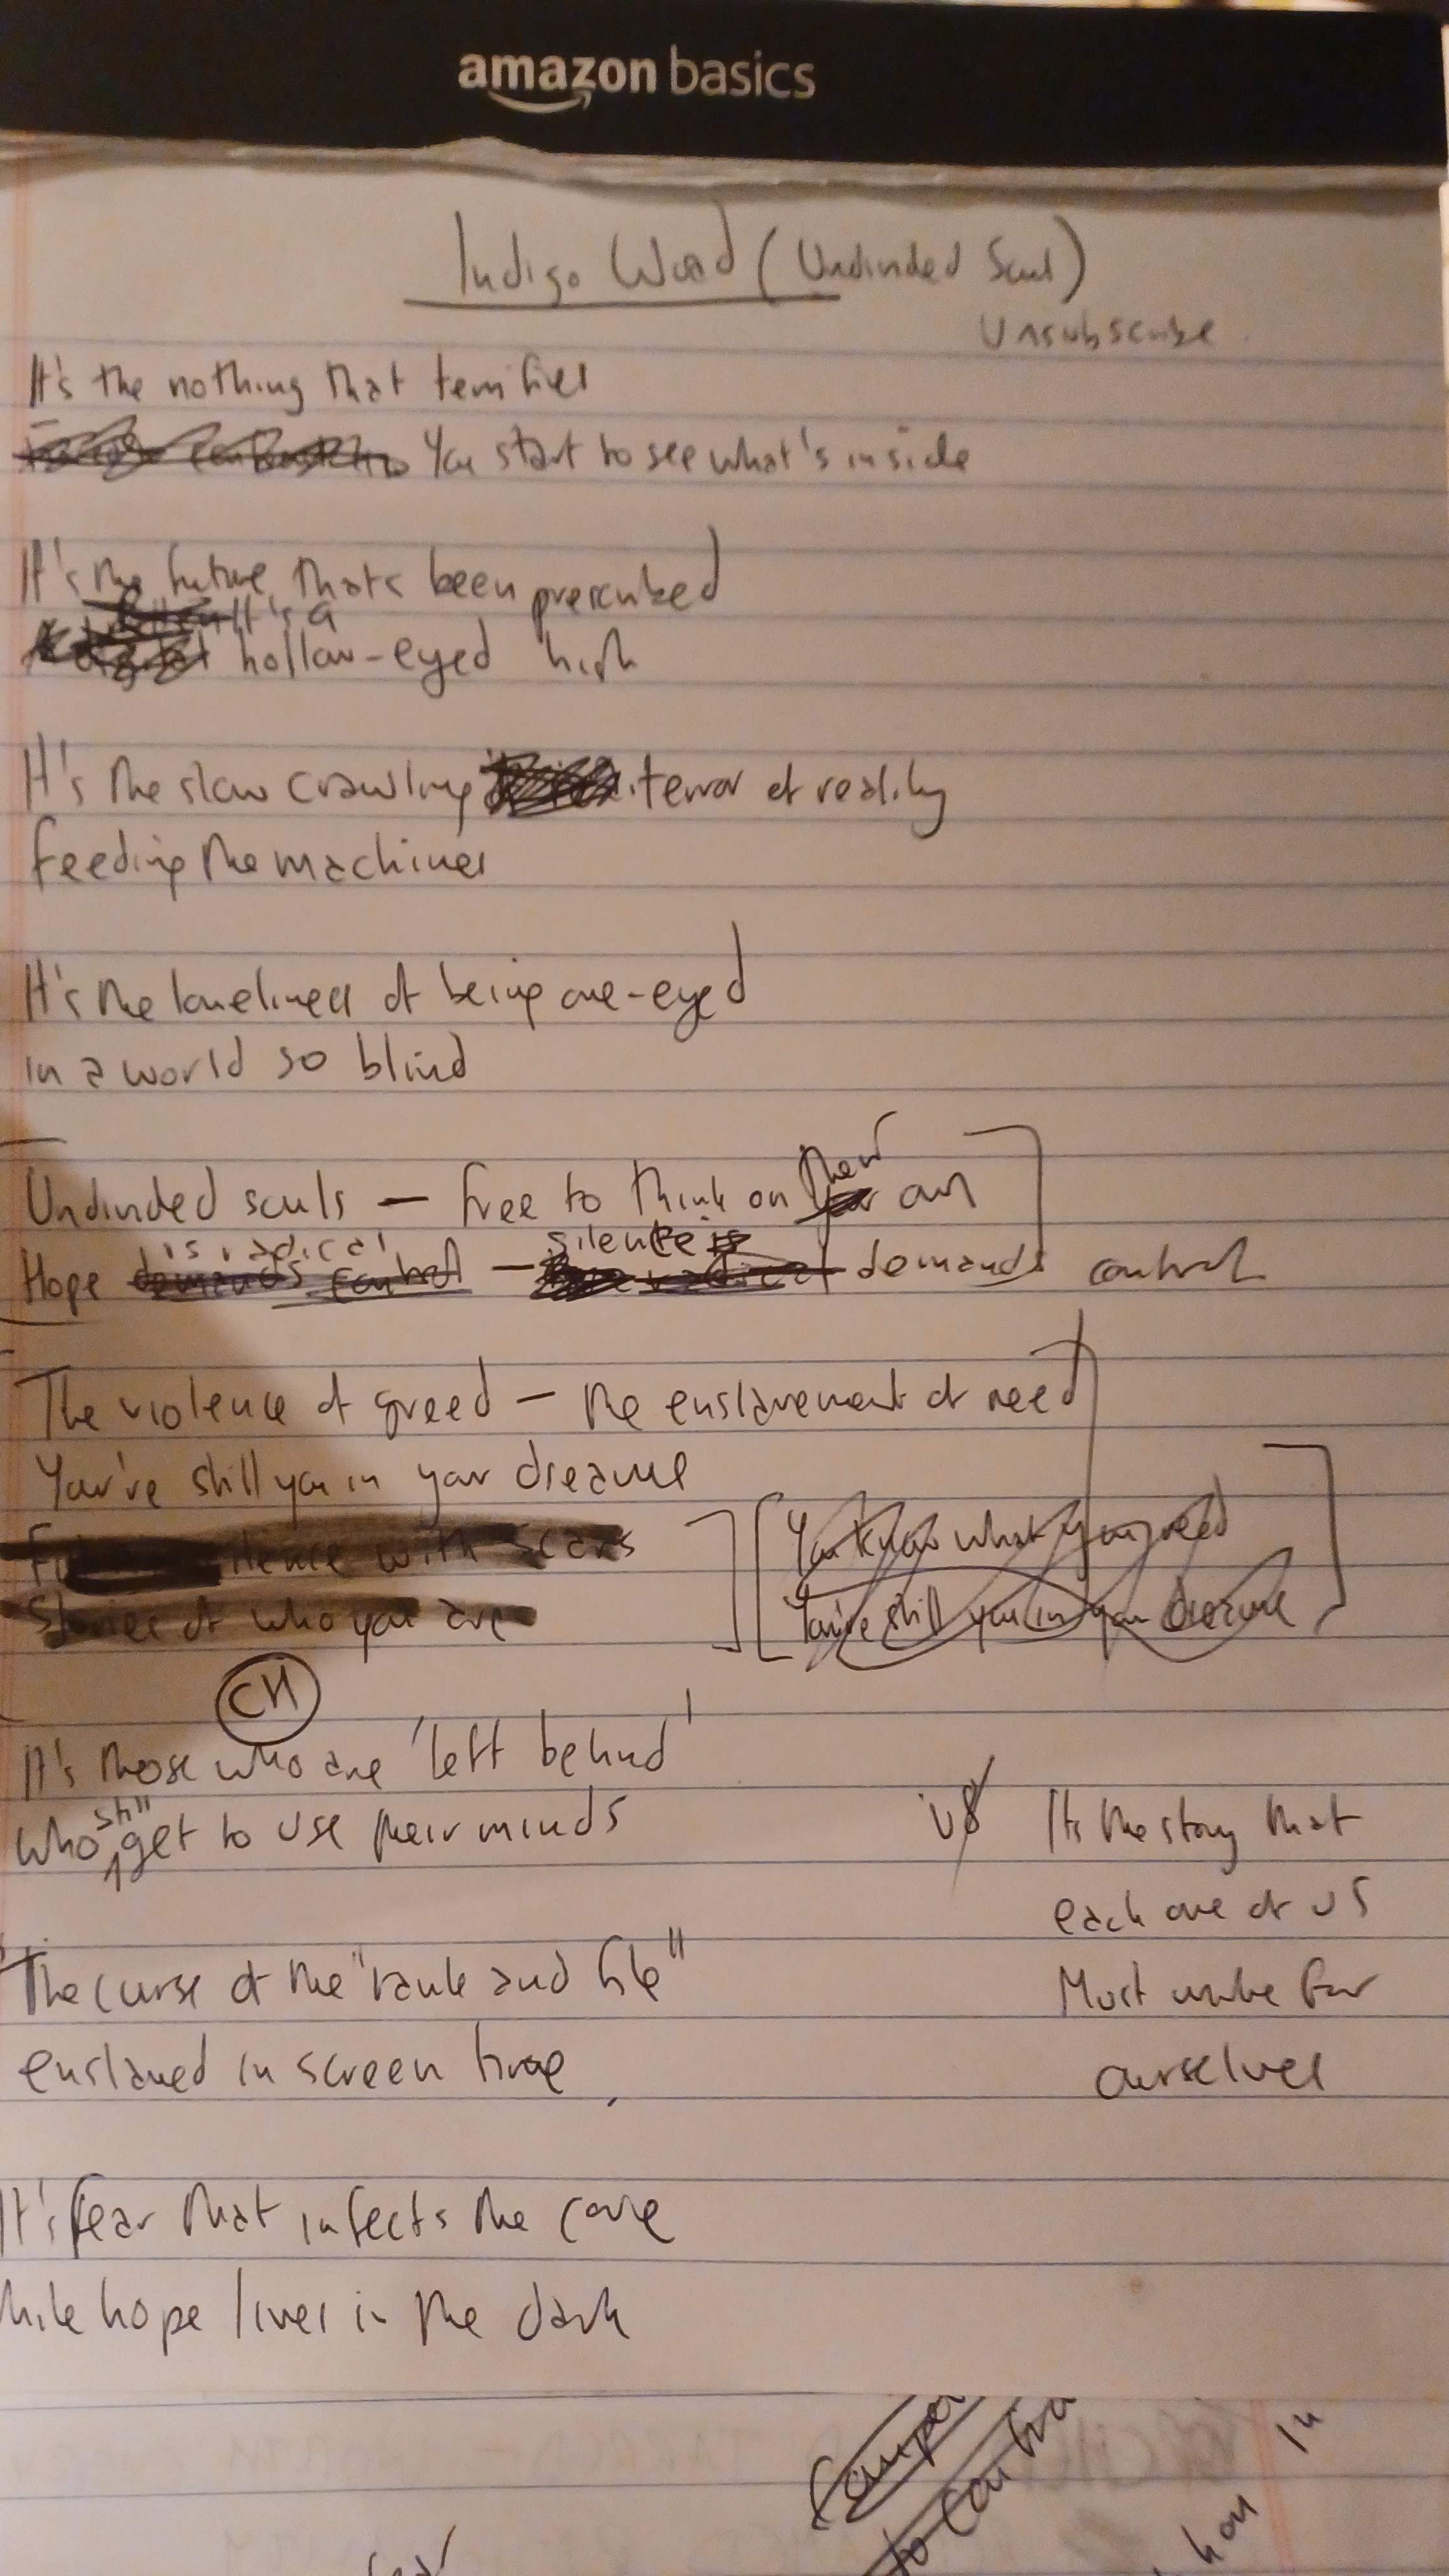 amazon basics
Indigo Word (Undivided Soul)
Unsubscribe
It's the nothing that terrifies
You start to see what's inside
It's the future that's been prescribed
It's a
hollow-eyed high
It's the slow crawling terror of reality
feeding the machines
It's the loneliness of being one-eyed
in a world so blind
Undivided souls — free to think on their own
is radical silence
Hope demands control — radical demands control
The violence of greed — the enslavement of need
You're still you in your dreams
silence with scars
You know what you need
Stories of who you are
You're still you in your dreams
CH
It's those who are 'left behind'
who still get to use their minds
vs
Its the story that
each one of us
Must write for
ourselves
The curse of the "rank and file"
enslaved in screen time
It's fear that infects the core
hile hope lives in the dark
to contro
in